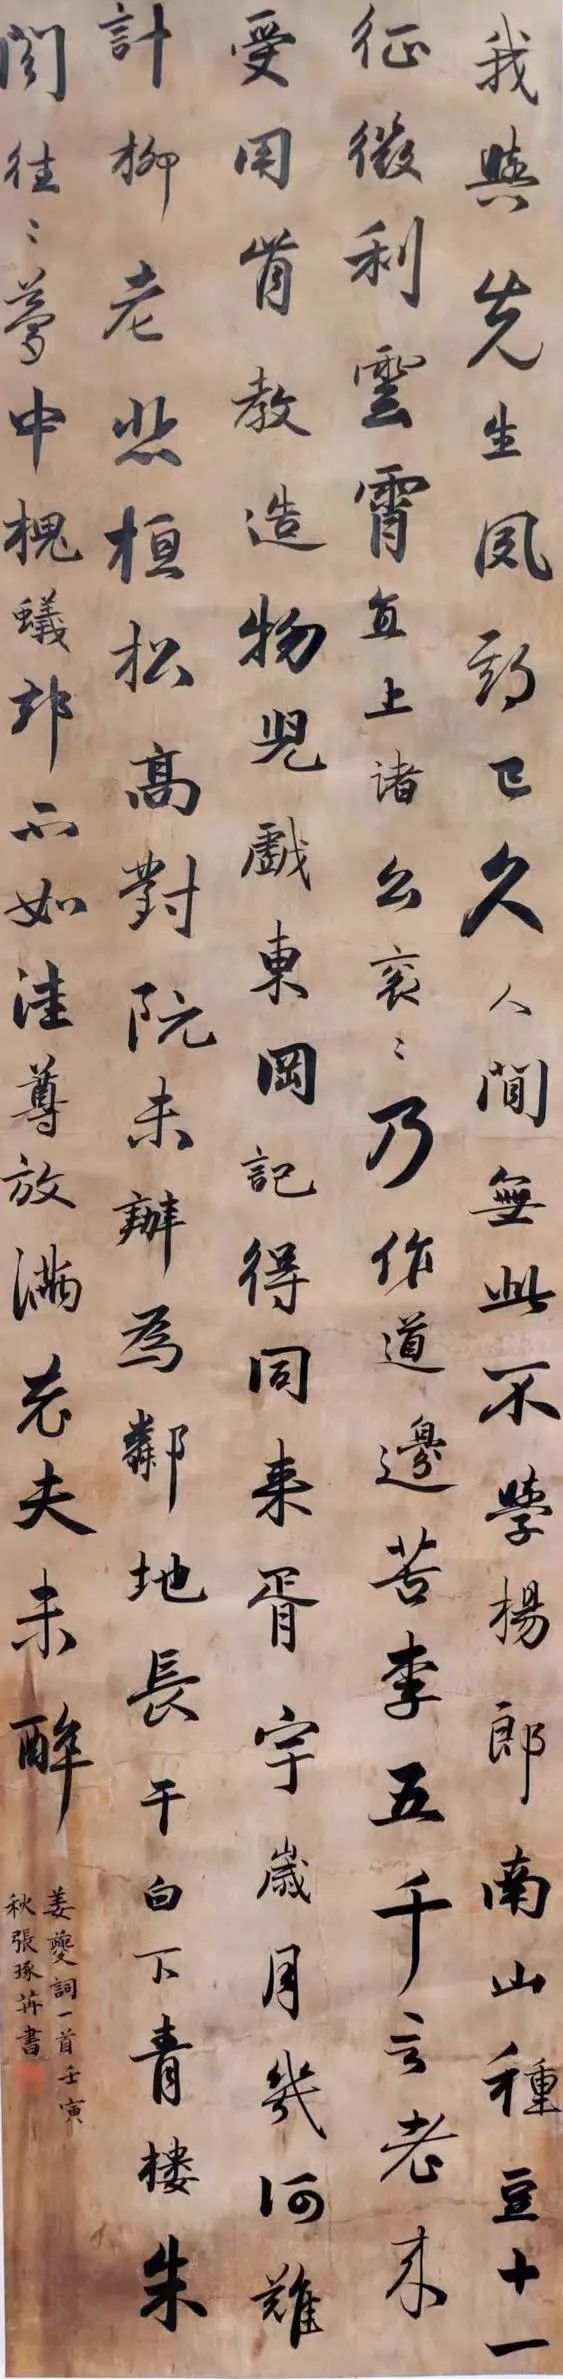 我與先生夙期已久人間無此不學楊郎南山種豆十一
征微利雲霄直上諸公衮〻乃作道邊苦李五千言老來
受用肯教造物兒戲東岡記得同來胥宇歲月幾何難
計柳老悲桓松高對阮未辦為鄰地長干白下青樓朱
閣往〻夢中槐蟻却不如洼尊放滿老夫未醉
姜夔詞一首壬寅
秋張琢苒書